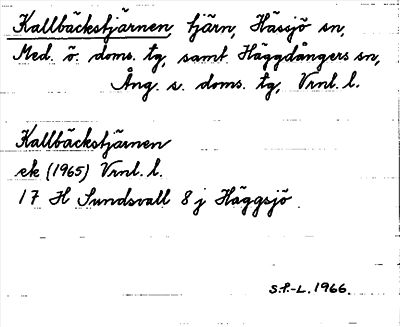 Kallbäckstjärnen, tjärn, Hässjö sn,
Med. ö. doms. tg, samt Häggdångers sn,
Ång. s. doms. tg, Vrnl. l.
Kallbäckstjärnen
ek (1965) Vrnl. l.
17 H Sundsvall 8 j Häggsjö
S.P.-L. 1966.